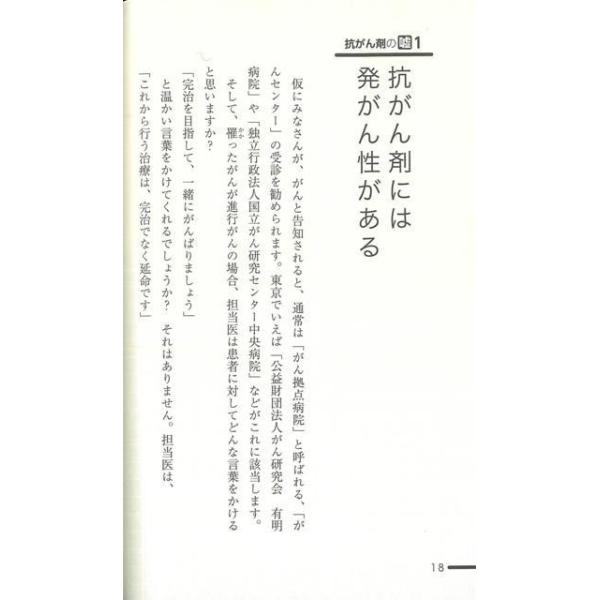 抗がん剤の嘘1
抗がん剤には
発がん性がある
仮にみなさんが、がんと告知されると、通常は「がん拠点病院」と呼ばれる、「が
んセンター」の受診を勧められます。東京でいえば「公益財団法人がん研究会　有明
病院」や「独立行政法人国立がん研究センター中央病院」などがこれに該当します。
そして、罹ったがんが進行がんの場合、担当医は患者に対してどんな言葉をかける
かか
と思いますか？
「完治を目指して、一緒にがんばりましょう」
と温かい言葉をかけてくれるでしょうか？　それはありません。担当医は、
「これから行う治療は、完治でなく延命です」
18